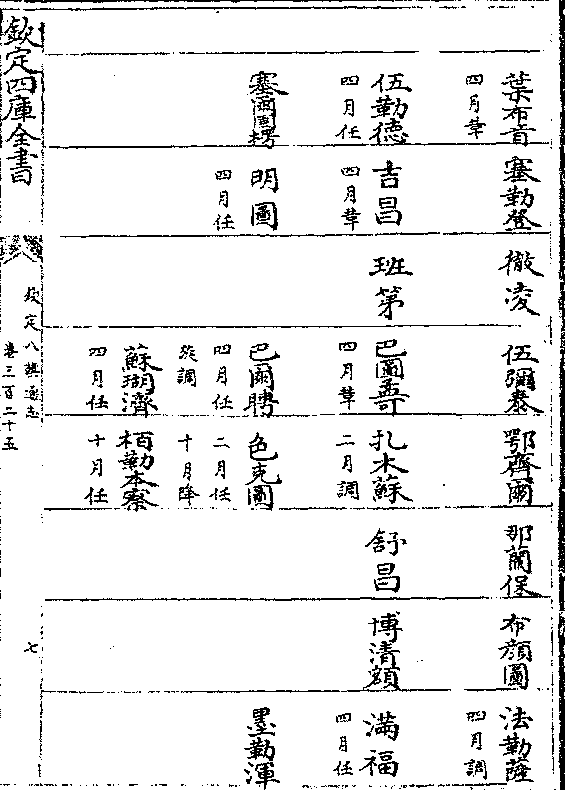 葉布首
四月革
伍勤德
四月任
塞爾圖楞
塞勒登
吉昌
四月革
明圖
四月任
徹凌
班第
伍彌泰
巴圖
四月革
巴爾聘
四月任
旋調
蘇瑚濟
四月任
鄂齊爾
扎木蘇
二月調
色克圖
二月任
十月降
栢勤本察
十月任
那蘭保
舒昌
布顏圖
博清額
法勒薩
四月調
滿福
四月任
墨勒渾
欽定四庫全書
欽定八旗通志
卷三百二十五
七